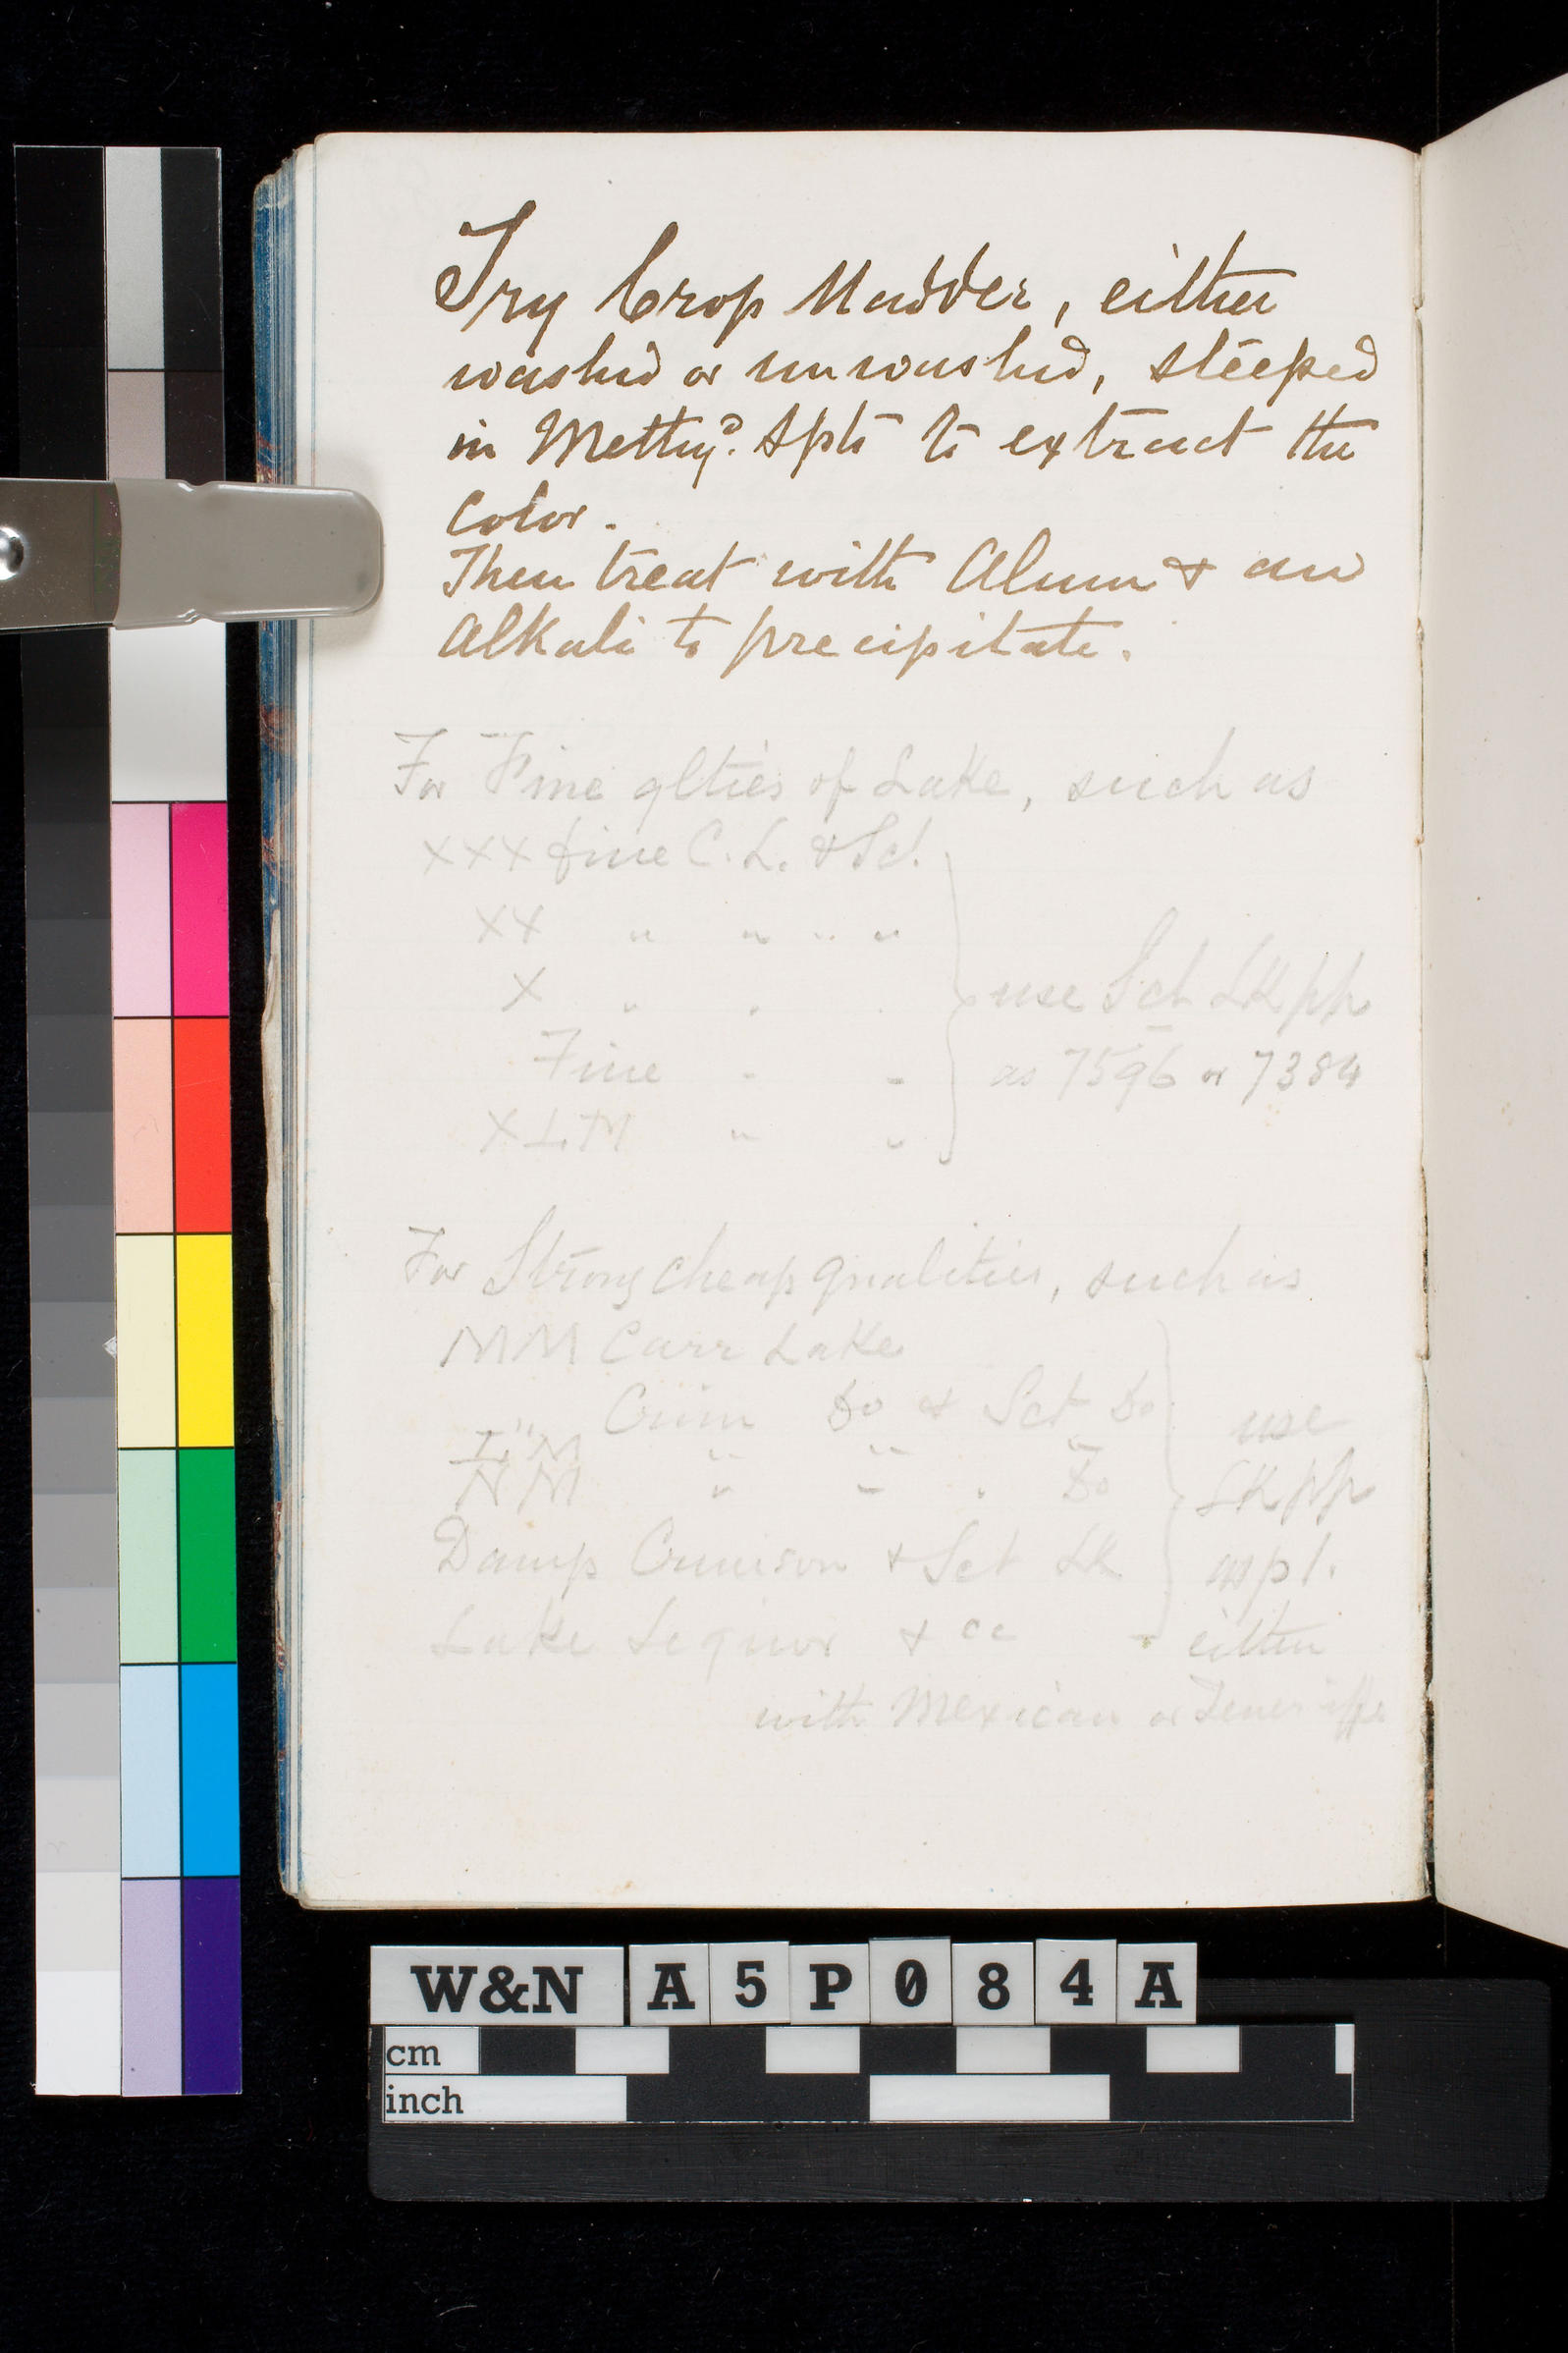 Try Crop Madder, either
washed or unwashed, steeped
in Methy^d. Spts to extract the
Color.
Then treat with Alum & an
Alkali to precipitate.
For Fine qlties of Lake, such as
xxx fine C. L. & Sct.
xx " " " "
x " " "
Fine " "
x L M " "
use Sct LK pp
as 7596 or 7384
For Strong cheap qualities, such as
MM Carr Lake
" Crim Do & Sct Do
L M " " "
N M " " " Do
Damp Crimson & Sct LK
Lake Liquor & cc
use
LK pp
as p 1.
either
with Mexican or Teneriffe
W&N A5P084A
cm
inch